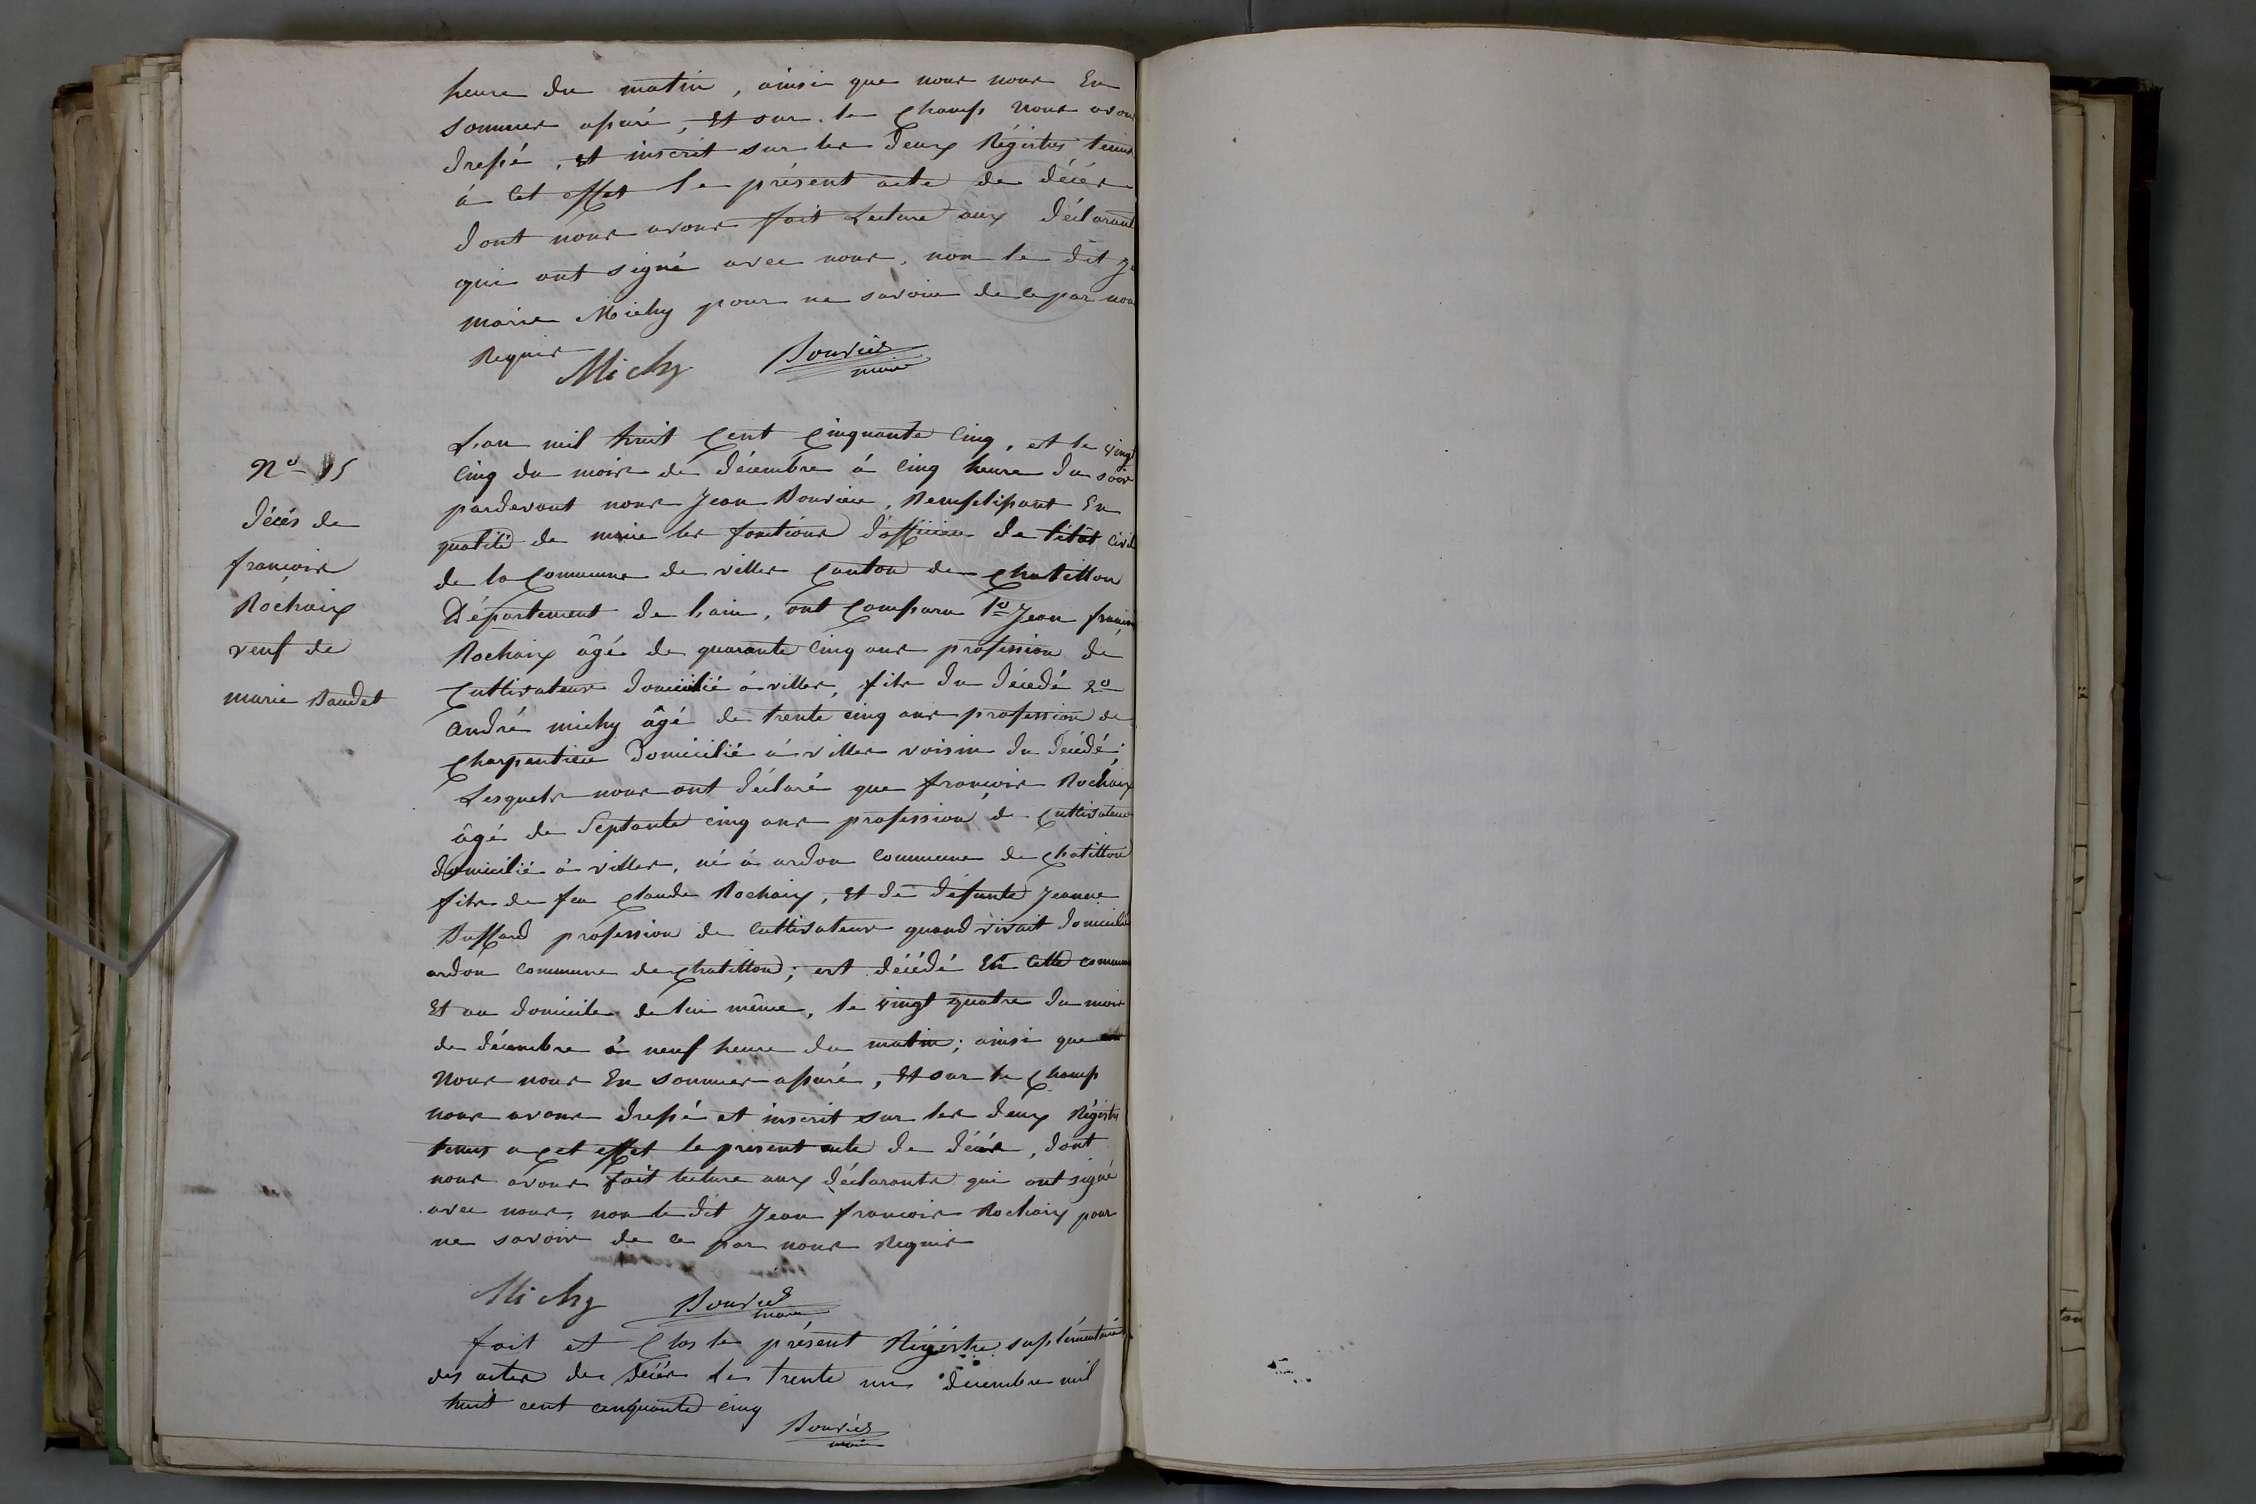 heure du matin, ainsi que nous nous En
sommes assuré, Et sur le Champ Nous avons
dressé, et inscrit sur les deux Régistres tenus
à Cet effet le présent acte de décès
dont nous avons fait Lecture aux déclarant
qui ont signé avec nous, non le dit
marie Michy pour ne savoir de ce par nous
Requis
Michy Bouvier
maire
L'an mil huit Cent Cinquante Cinq, et le vingt
Cinq du mois de décembre à Cinq heure du soir
pardevant nous Jean Bouvier, Remplissant En
qualité de maire les fonctions d'officier de l'état Civil
de la Commune de villes Canton de Chatillon
Département de l'ain, ont Comparu 1º Jean françois
Rochaix âgé de quarante Cinq ans profession de
Cultivateur domicilié à villes, fils du décédé 2º
andré michy âgé de trente cinq ans profession de
Charpentier domicilié à villes voisin du décédé;
Lesquels nous ont déclaré que françois Rochaix
âgé de Septante cinq ans profession de Cultivateur
domicilié à villes, né à ardon Commune de Chatillon
fils de feu Claude Rochaix, Et de défunte Jeanne
profession de Cultivateur quand vivait domicilié
ardon Commune de Chatillon; est décédé En Cette commune
Et au domicile de lui même, le vingt quatre du mois
de décembre à neuf heure du matin; ainsi que
Nous nous En sommes assuré, Et sur le Champ
nous avons dressé et inscrit sur les deux Régistres
tenus a cet effet le present acte de décès, dont
nous avons fait lecture aux déclarants qui ont signé
avec nous, non le dit Jean françois Rochaix pour
ne savoir de ce par nous Requis
Michy Bouvier
maire
fait et Clos le présent Régistre suplémentaire
des actes de décès le trente un decembre mil
huit cent cinquante cinq
Bouvier
maire
Nº 15
décès de
françois
Rochaix
veuf de
marie Baudet